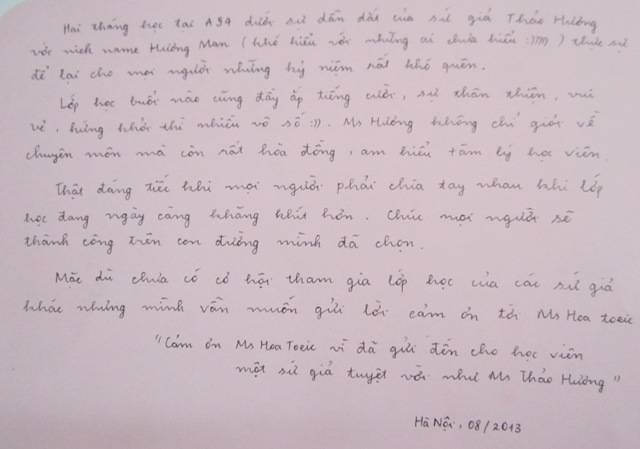 Hai tháng học tại A94 dưới sự dẫn dắt của sứ giả Thảo Hương
với nich name Hương Man ( khó hiểu với những ai chưa hiểu :)))) ) thực sự
để lại cho mọi người những kỷ niệm rất khó quên.
Lớp học buổi nào cũng đầy ắp tiếng cười, sự thân thiện, vui
vẻ, hứng khởi thì nhiều vô số :)). Ms Hương không chỉ giỏi về
chuyên môn mà còn rất hòa đồng, am hiểu tâm lý học viên.
Thật đáng tiếc khi mọi người phải chia tay nhau khi lớp
học đang ngày càng khăng khít hơn. Chúc mọi người sẽ
thành công trên con đường mình đã chọn.
Mặc dù chưa có cơ hội tham gia lớp học của các sứ giả
khác nhưng mình vẫn muốn gửi lời cảm ơn tới Ms Hoa toeic
"Cảm ơn Ms Hoa Toeic vì đã gửi đến cho học viên
một sứ giả tuyệt vời như Ms Thảo Hương"
Hà Nội, 08/2013